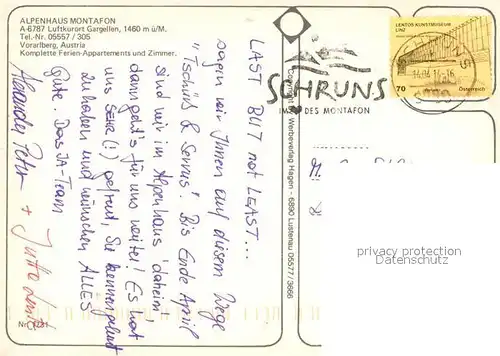 ALPENHAUS MONTAFON
A-6787 Luftkurort Gargellen, 1460 m ü/M.
Tel.-Nr. 05557 / 305
Vorarlberg, Austria
Komplette Ferien-Appartements und Zimmer.
LAST BUT not LEAST...
sagen wir Ihnen auf diesem Wege
"Tschüß & Servus". Bis Ende April
sind wir im Alpenhaus "daheim",
dann geht's für uns weiter! Es hat
uns SEHR (!) gefreut, Sie kennengelernt
zu haben und wünschen ALLES
Gute. Das JA-Team
Alexander Peter + Jutta
Nr. 1731
Copyright Werbeverlag Hagen - 6890 Lustenau 05577/3666
SCHRUNS
DES MONTAFON
LENTOS KUNSTMUSEUM
LINZ
70
Österreich
privacy protection
Datenschutz